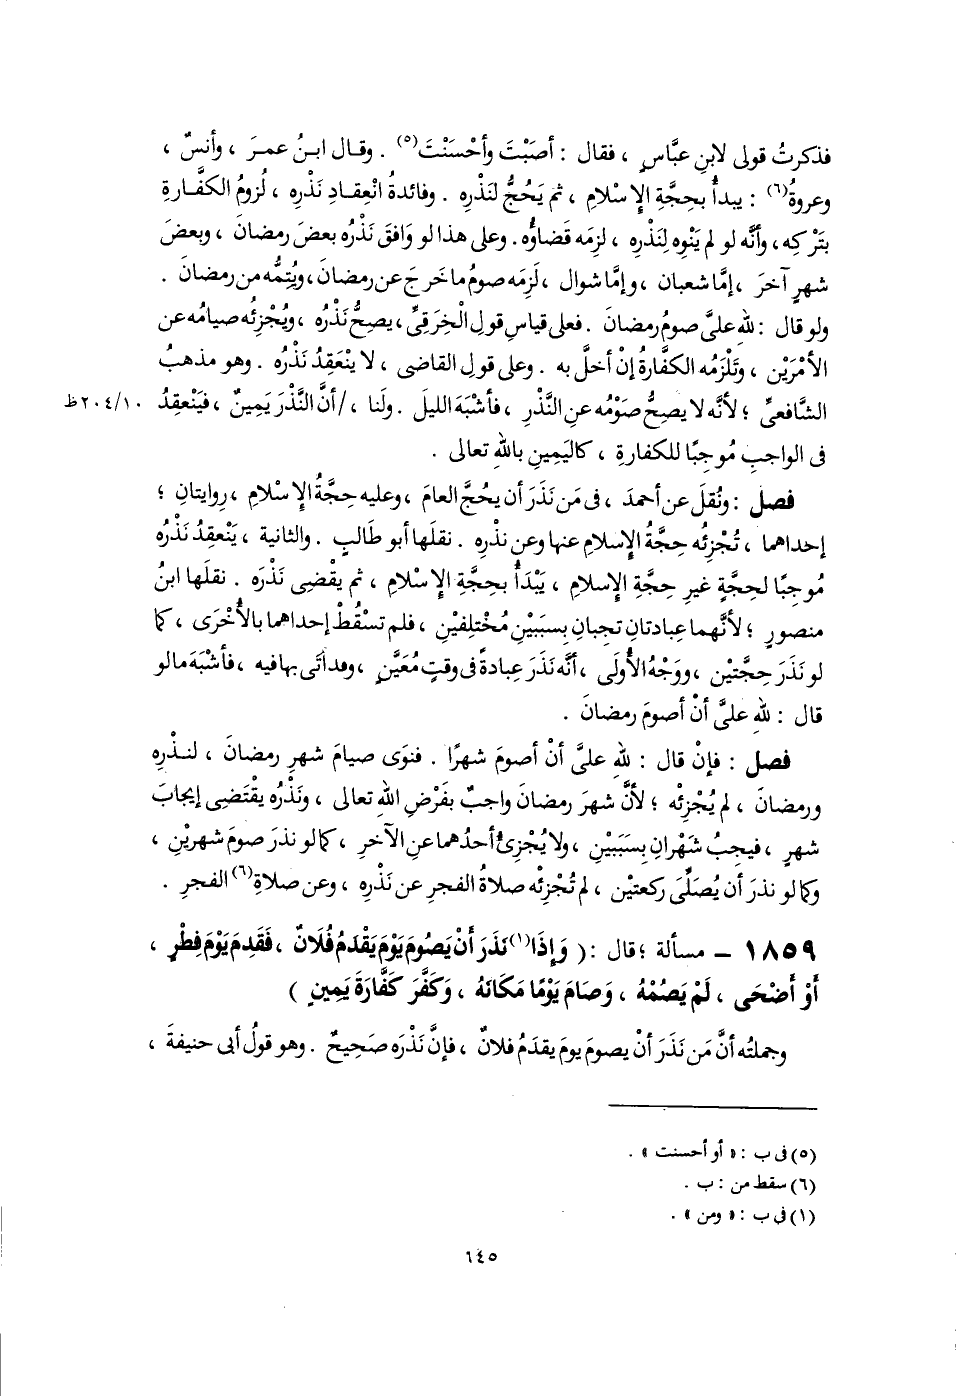 فذكرتُ قولى لابنِ عبَّاسٍ ، فقال : أصَبْتَ وأحْسَنْتَ(٥) . وقال ابنُ عمرَ ، وأنسٌ ،
وعروةُ(٦) : يبدأُ بحِجَّةِ الإِسْلامِ ، ثم يَحُجُّ لنَذْرِه . وفائدةُ انْعِقادِ نَذْرِه ، لُزومُ الكفَّارةِ
بتَرْكِه، وأنَّه لو لم يَنْوِه لِنَذْرِه ، لزِمَه قضاؤُه. وعلى هذا لو وَافَقَ نَذْرُه بعضَ رمضانَ ، وبعضَ
شهرٍ آخرَ ، إمَّا شعبان ، وإمَّا شوال ، لَزِمَه صومُ ما خرجَ عن رمضانَ، ويُتِمُّه من رمضانَ .
ولو قال : للهِ علىَّ صومُ رمضانَ . فعلى قياسِ قولِ الْخِرَقِىِّ، يصِحُّ نَذْرُه ، ويُجْزِئُه صيامُه عن
الأمْرَيْن ، وتَلْزَمُه الكفَّارةُ إنْ أخلَّ به . وعلى قولِ القاضى ، لا ينْعَقِدُ نَذْرُه . وهو مذهبُ
الشَّافعىِّ ؛ لأنَّه لا يصِحُّ صَوْمُه عن النَّذْرِ ، فأشْبَهَ الليلَ . ولَنا ، / أنَّ النَّذْرَ يَمِينٌ ، فيَنْعقِدُ ٢٠٤/١٠ظ
فى الواجبِ مُوجِبًا للكفارةِ ، كاليَمِينِ باللهِ تعالى .
فصل : ونُقلَ عن أحمدَ ، فى مَن نَذَرَ أن يحُجَّ العامَ ، وعليه حِجَّةُ الإِسْلامِ ، رِوايتانِ ؛
إحداهما ، تُجْزِئُه حِجَّةُ الإسلامِ عنها وعن نَذْرِه . نقلَها أبو طَالبٍ . والثانية ، يَنْعقِدُ نَذْرُه
مُوجِبًا لحِجَّةٍ غيرِ حِجَّةِ الإِسلامِ ، يَبْدَأُ بحِجَّةِ الإِسْلامِ ، ثم يقْضِى نَذْرَه . نقلَها ابنُ
منصورٍ ؛ لأنَّهما عِبادتانِ تجبانِ بسبَبَيْنِ مُخْتلِفَيْنِ ، فلم تسْقُطْ إحداهما بالأُخْرَى ، كما
لو نَذَرَ حِجَّتَيْنِ ، ووَجْهُ الأُولَى ، أنَّه نَذَرَ عِبادةً فى وقتٍ مُعَيَّنٍ ، وقد أتَى بها فيه ، فأشْبَهَ ما لو
قال : للهِ علىَّ أنْ أصومَ رمضانَ .
فصل : فإنْ قال : للهِ علىَّ أنْ أصومَ شهرًا . فنوَى صيامَ شهرِ رمضانَ ، لنذْرِه
ورمضانَ ، لم يُجْزِئْه ؛ لأنَّ شهرَ رمضانَ واجبٌ بفَرْضِ اللهِ تعالى ، ونَذْرُه يقْتَضِى إيجابَ
شهرٍ ، فيجبُ شَهْرانِ بسَبَبَيْنِ ، ولا يُجْزِئُ أحدُهما عن الآخرِ ، كما لو نذرَ صومَ شهريْنِ ،
وكما لو نذرَ أن يُصلِّىَ ركعتيْنِ ، لم تُجْزِئْه صلاةُ الفجرِ عن نَذْرِه ، وعن صلاةِ(٦) الفجرِ .
١٨٥٩ - مسألة ؛ قال : ( وَإِذَا(١) نَذَرَ أَنْ يَصُومَ يَوْمَ يَقْدَمُ فُلَانٌ ، فَقَدِمَ يَوْمَ فِطْرٍ ،
أَوْ أَضْحَى ، لَمْ يَصُمْهُ ، وَصَامَ يَوْمًا مَكَانَهُ ، وَكَفَّرَ كَفَّارَةَ يَمِينٍ )
وجملتُه أنَّ مَن نَذَرَ أنْ يصومَ يومَ يقدَمُ فلانٌ ، فإنَّ نَذْرَه صَحِيحٌ . وهو قولُ أبى حنيفةَ ،
(٥) فى ب : « أو أحسنت » .
(٦) سقط من : ب .
(١) فى ب : « ومن » .
٦٤٥